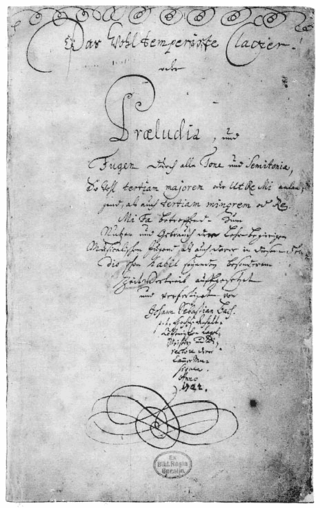 Das Wohltemperirte Clavier.
oder
Præludia, und
Fugen durch alle Tone und Semitonia,
So wohl tertiam majorem oder Ut Re Mi anlan-
gend, als auch tertiam minorem oder Re
Mi Fa betreffend. Zum
Nutzen und Gebrauch der Lehrbegierigen
Musicalischen Jugend, als auch derer in diesem
schon habil seyenden besonderem
ZeitVertreib auffgesetzet
und verfertiget von
Johann Sebastian Bach.
p. t.
Capel-
Meistern und Di-
rectore derer
Cammer
Anno
1722.